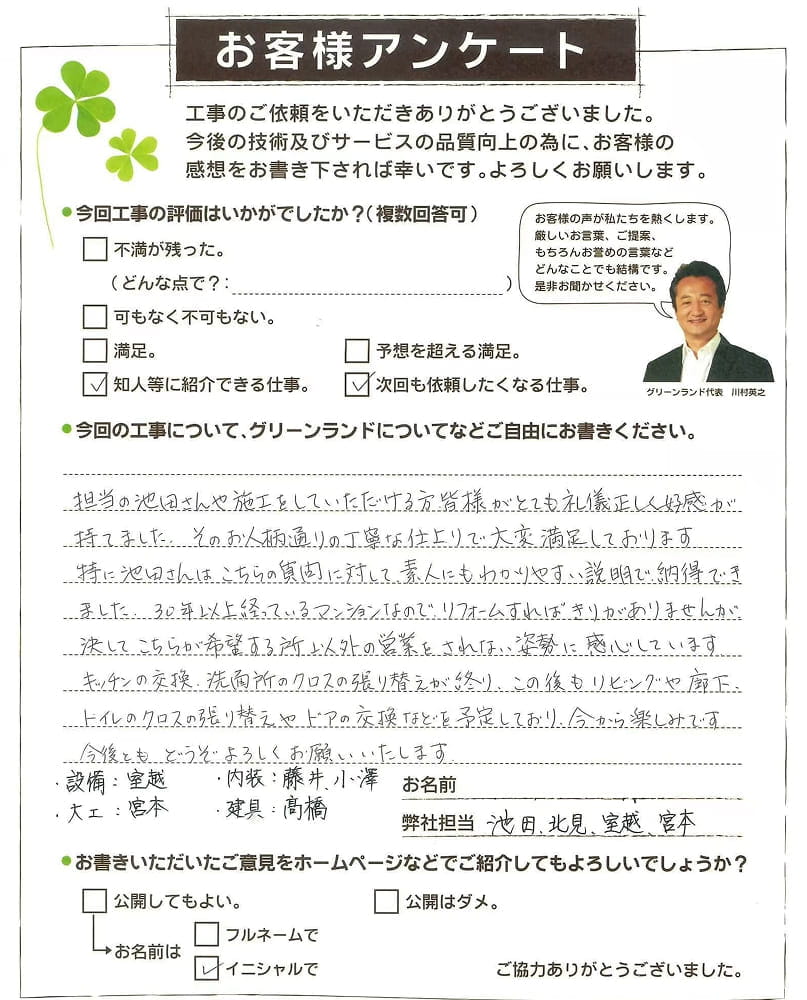 お客様アンケート
工事のご依頼をいただきありがとうございました。
今後の技術及びサービスの品質向上の為に、お客様の
感想をお書き下されば幸いです。よろしくお願いします。
今回工事の評価はいかがでしたか?(複数回答可)
不満が残った。
(どんな点で?: )
可もなく不可もない。
満足。 予想を超える満足。
知人等に紹介できる仕事。 次回も依頼したくなる仕事。
お客様の声が私たちを熱くします。
厳しいお言葉、ご提案、
もちろんお誉めの言葉など
どんなことでも結構です。
是非お聞かせください。
グリーンランド代表 川村英之
今回の工事について、グリーンランドについてなどご自由にお書きください。
担当の池田さんや施工をしていただける方皆様がとても礼儀正しく好感が
持てました。そのお人柄通りの丁寧な仕上りで大変満足しております
特に池田さんはこちらの質問に対して素人にもわかりやすい説明で納得でき
ました。30年以上経っているマンションなので、リフォームすればきりがありませんが、
決してこちらが希望する所以外の営業をされない姿勢に感心しています
キッチンの交換、洗面所のクロスの張り替えが終り、この後もリビングや廊下、
トイレのクロスの張り替えやドアの交換などを予定しており、今から楽しみです
今後とも、どうぞよろしくお願いいたします。
・設備:室越 ・内装:藤井、小澤
・大工:宮本 ・建具:髙橋
お名前
弊社担当 池田、北見、室越、宮本
お書きいただいたご意見をホームページなどでご紹介してもよろしいでしょうか?
公開してもよい。 公開はダメ。
お名前は フルネームで
イニシャルで
ご協力ありがとうございました。